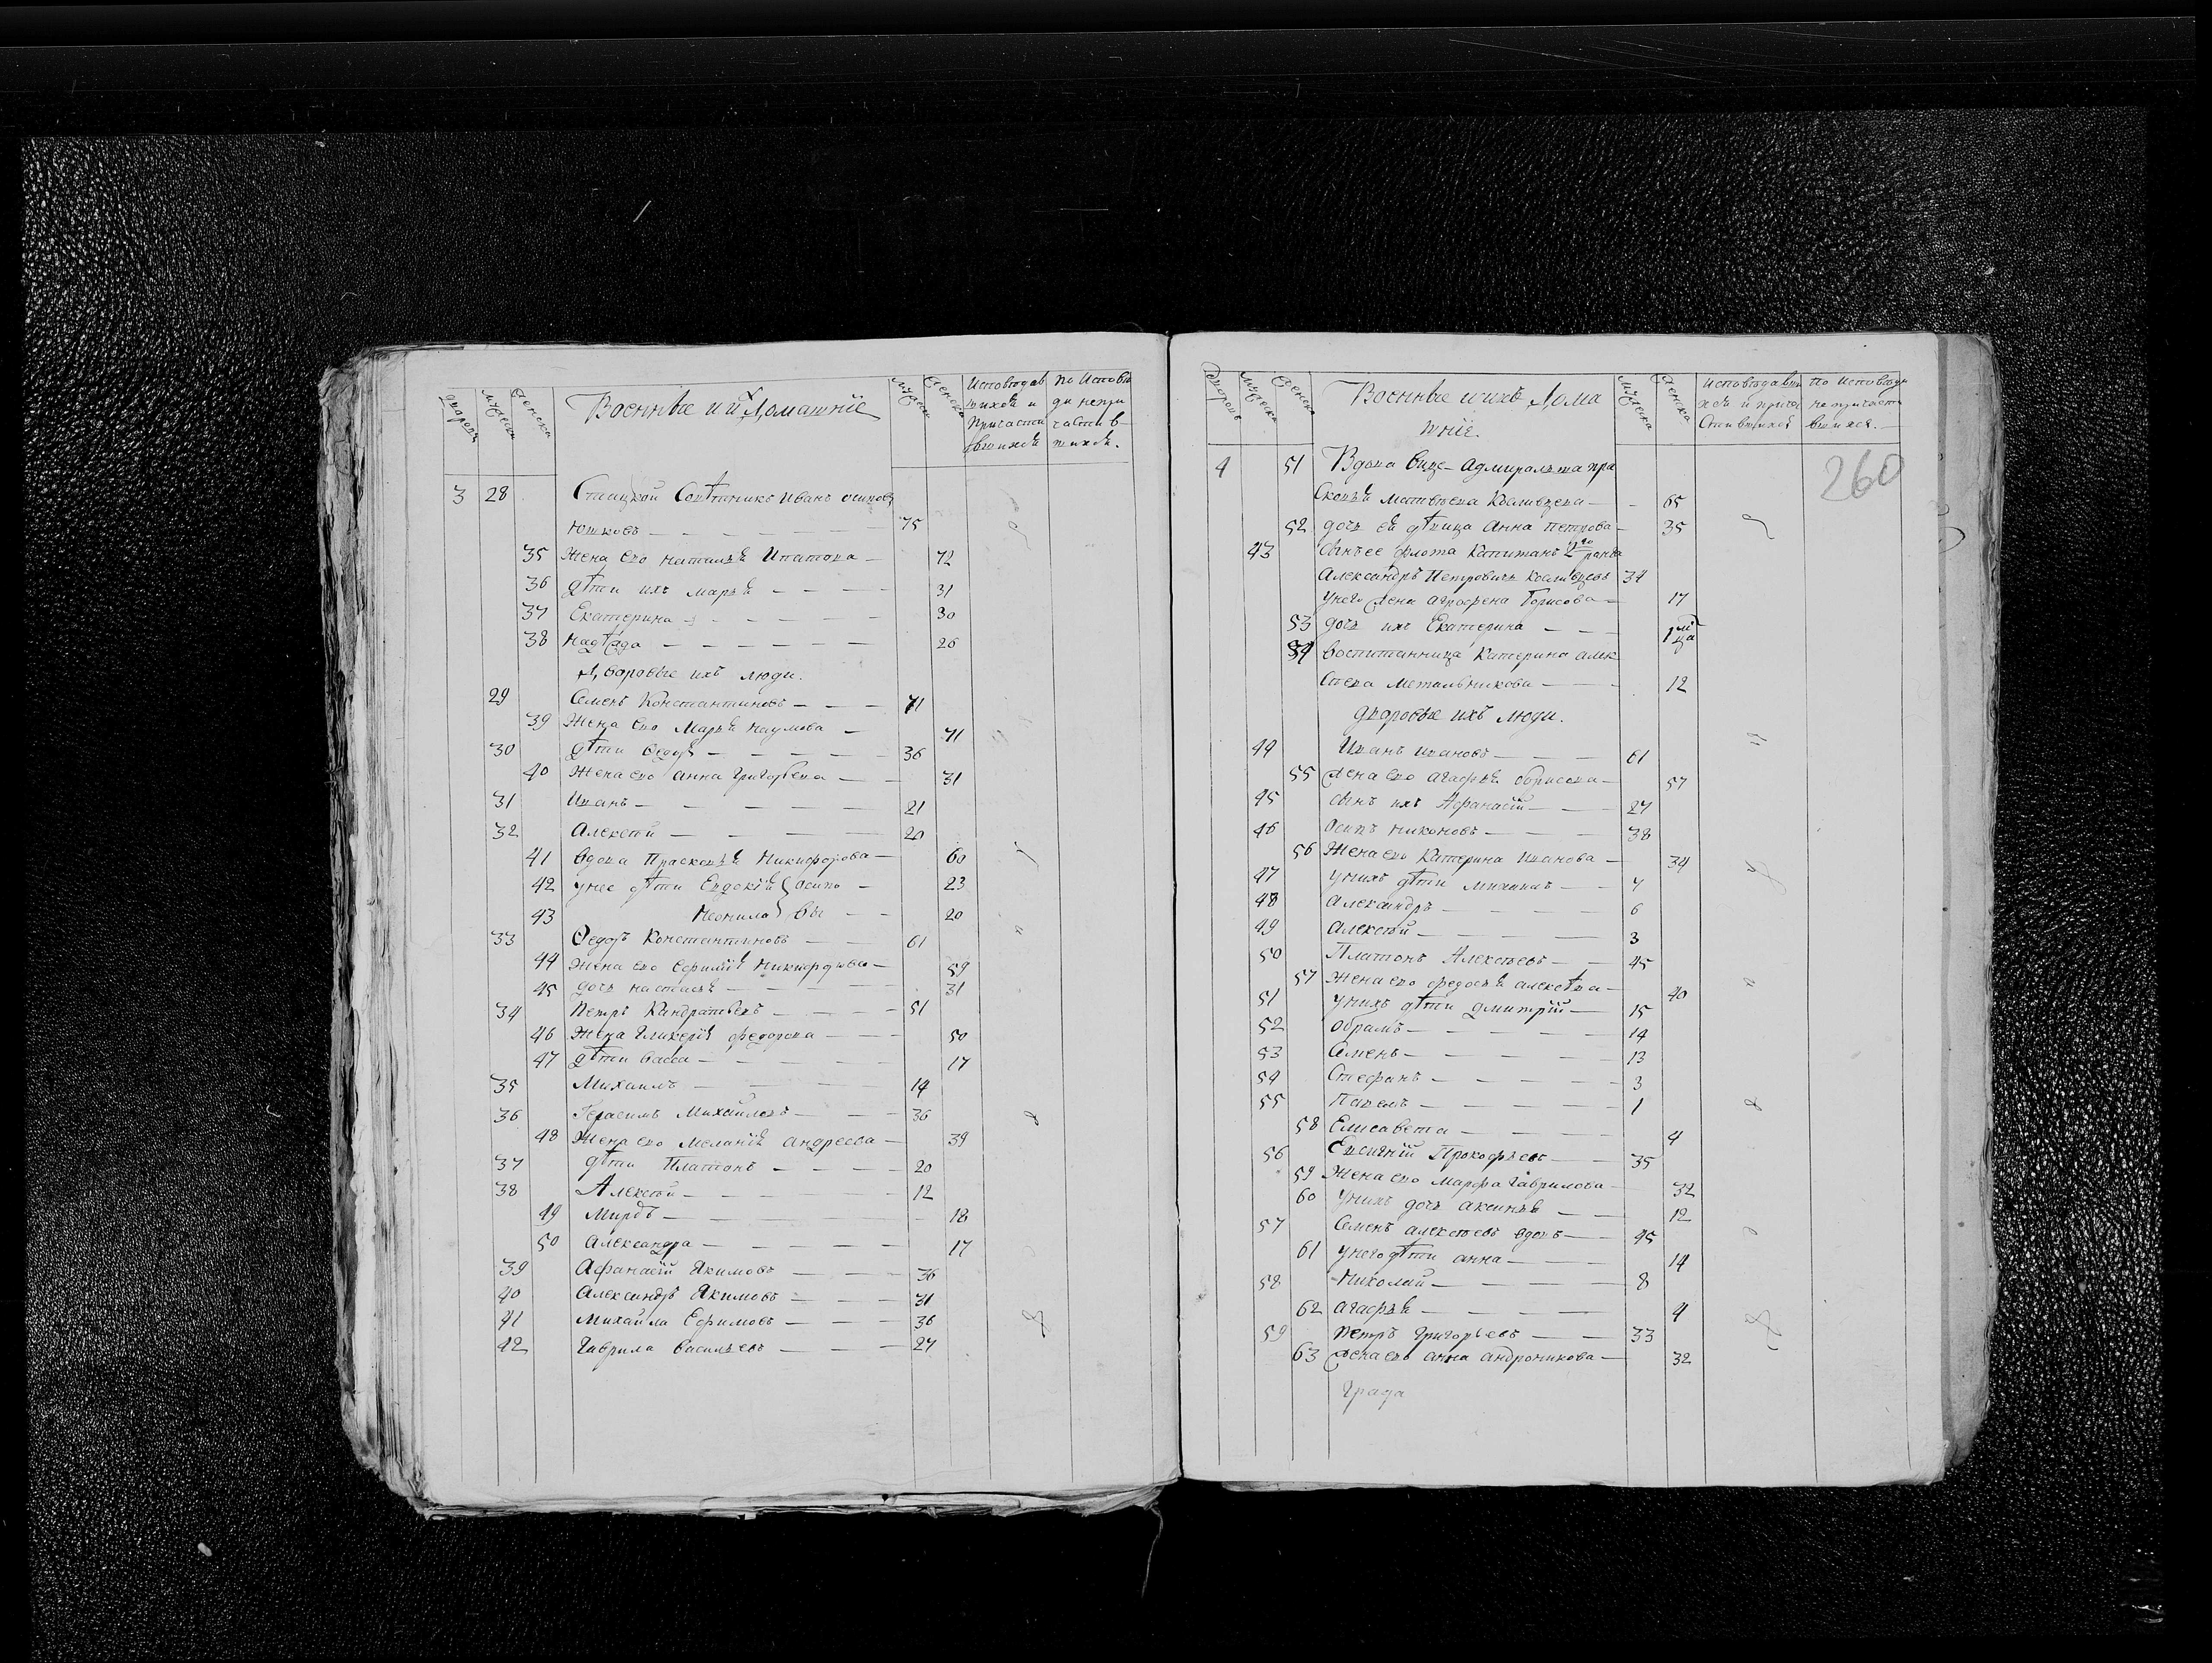 дворовъ мужеска женска Военныѣ и ихъ Домашнїе мужеска женска Исповѣдав по Исповѣ
шихся и ди непри
Причасти частив
вшихся шихся.
3 28 Стацкой Совѣтникъ Иванъ осиповъ
Юшковъ — 75
35 Жена его наталья Ипатова — 72
36 дѣти ихъ марья — 31
37 Екатерина — 30
38 надѣжда — 26
Дворовые ихъ люди.
29 Семенъ Константиновъ — 71
39 Жена его Марья наумова — 71
30 дѣти Ѳедоръ — 36
40 Жена его анна григорьева — 31
31 Иванъ — 21
32 Алексѣй — 20
41 вдова Прасковья Никифорова — 60
42 унее дѣти Евдокїя осипо — 23
43 Неонила вы — 20
33 Ѳедоръ Константиновъ — 61
44 Жена его Ефимїя Никифорова — 59
45 дочь настасья — 31
34 Петръ Кандратьевъ — 51
46 Жена Гликерїя федорова — 50
47 дѣти васса — 17
35 Михаилъ — 14
36 Герасимъ Михайловъ — 36
48 Жена его меланїя андреева — 39
37 дѣти Платонъ — 20
38 Алексѣй — 12
49 — 18
50 Александра — 17
39 Афанасїй Якимовъ — 36
40 Александръ Якимовъ — 31
41 Михайла Ефимовъ — 36
42 Гаврила васильевъ — 27
дворовъ мужеска женска Военныѣ и ихъ Дома мужеска женска исповѣдавши по исповѣди
шнїе. хся и прича непричасти
стившихся вшихся.
260
4 51 Вдова вице-адмиральша пра
сковья матвѣева — 65
52 дочь ея дѣвица Анна петрова — 35
43 сынъ ее флота Капитанъ 2го ранга
Александръ Петровичь 34
унего жена аграфена борисова — 17
53 дочь ихъ Екатерина — 1 мца
54 воспитанница Катерина алек
сѣева метальникова — 12
дворовые ихъ люди.
44 Иванъ ивановъ — 61
55 жена его агафья борисова — 57
45 сынъ ихъ Афанасїй — 27
46 осипъ никоновъ — 38
56 Жена его Катерина иванова — 34
47 унихъ дѣти михаилъ — 7
48 Александръ — 6
49 Алексѣй — 3
50 Платонъ Алексѣевъ — 45
57 Жена его федосья алексѣева — 40
51 унихъ дѣти дмитрїй — 15
52 абрамъ — 14
53 Семенъ — 13
54 Стефанъ — 3
55 Павелъ — 1
58 Елисавета — 4
56 Евсигнїй Прокофьевъ — 35
59 Жена его марфа гаврилова — 32
60 унихъ дочь аксинья — 12
57 Семенъ алексѣевъ вдовъ — 45
61 унего дѣти анна — 14
58 Николай — 8
62 агафья — 4
59 петръ григорьевъ — 33
63 жена его анна андроникова — 32
града